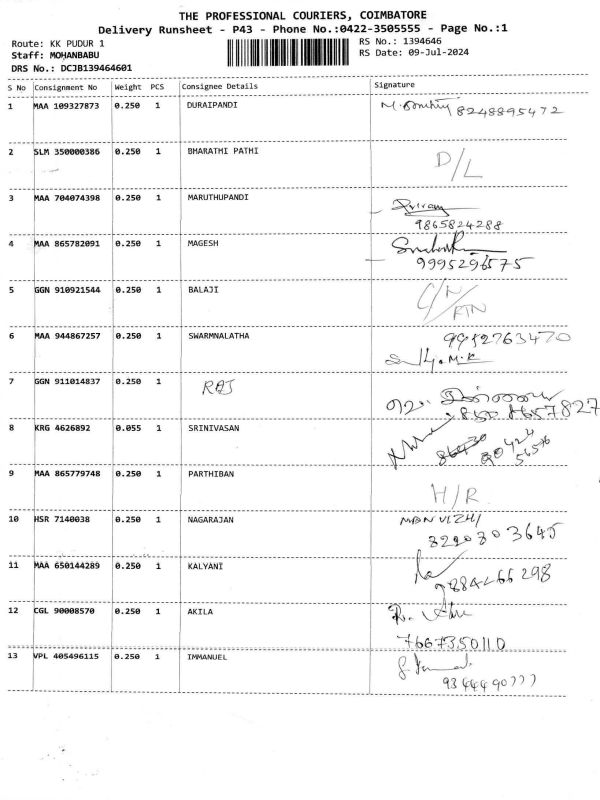 THE PROFESSIONAL COURIERS, COIMBATORE
Delivery Runsheet - P43 - Phone No.:0422-3505555 - Page No.:1
Route: KK PUDUR 1
RS No.: 1394646
Staff: MOHANBABU
RS Date: 09-Jul-2024
DRS No.: DCJB139464601
S No Consignment No Weight PCS Consignee Details Signature
1 MAA 109327873 0.250 1 DURAIPANDI 8248895472
2 SLM 350000386 0.250 1 BHARATHI PATHI D/L
3 MAA 704074398 0.250 1 MARUTHUPANDI
9865824288
4 MAA 865782091 0.250 1 MAGESH
9995296575
5 GGN 910921544 0.250 1 BALAJI
RTN
6 MAA 944867257 0.250 1 SWARMNALATHA 9952763470
7 GGN 911014837 0.250 1 RAJ
8 KRG 4626892 0.055 1 SRINIVASAN
9 MAA 865779748 0.250 1 PARTHIBAN H/R
10 HSR 7140038 0.250 1 NAGARAJAN
11 MAA 650144289 0.250 1 KALYANI
12 CGL 90008570 0.250 1 AKILA
7667350110
13 VPL 405496115 0.250 1 IMMANUEL